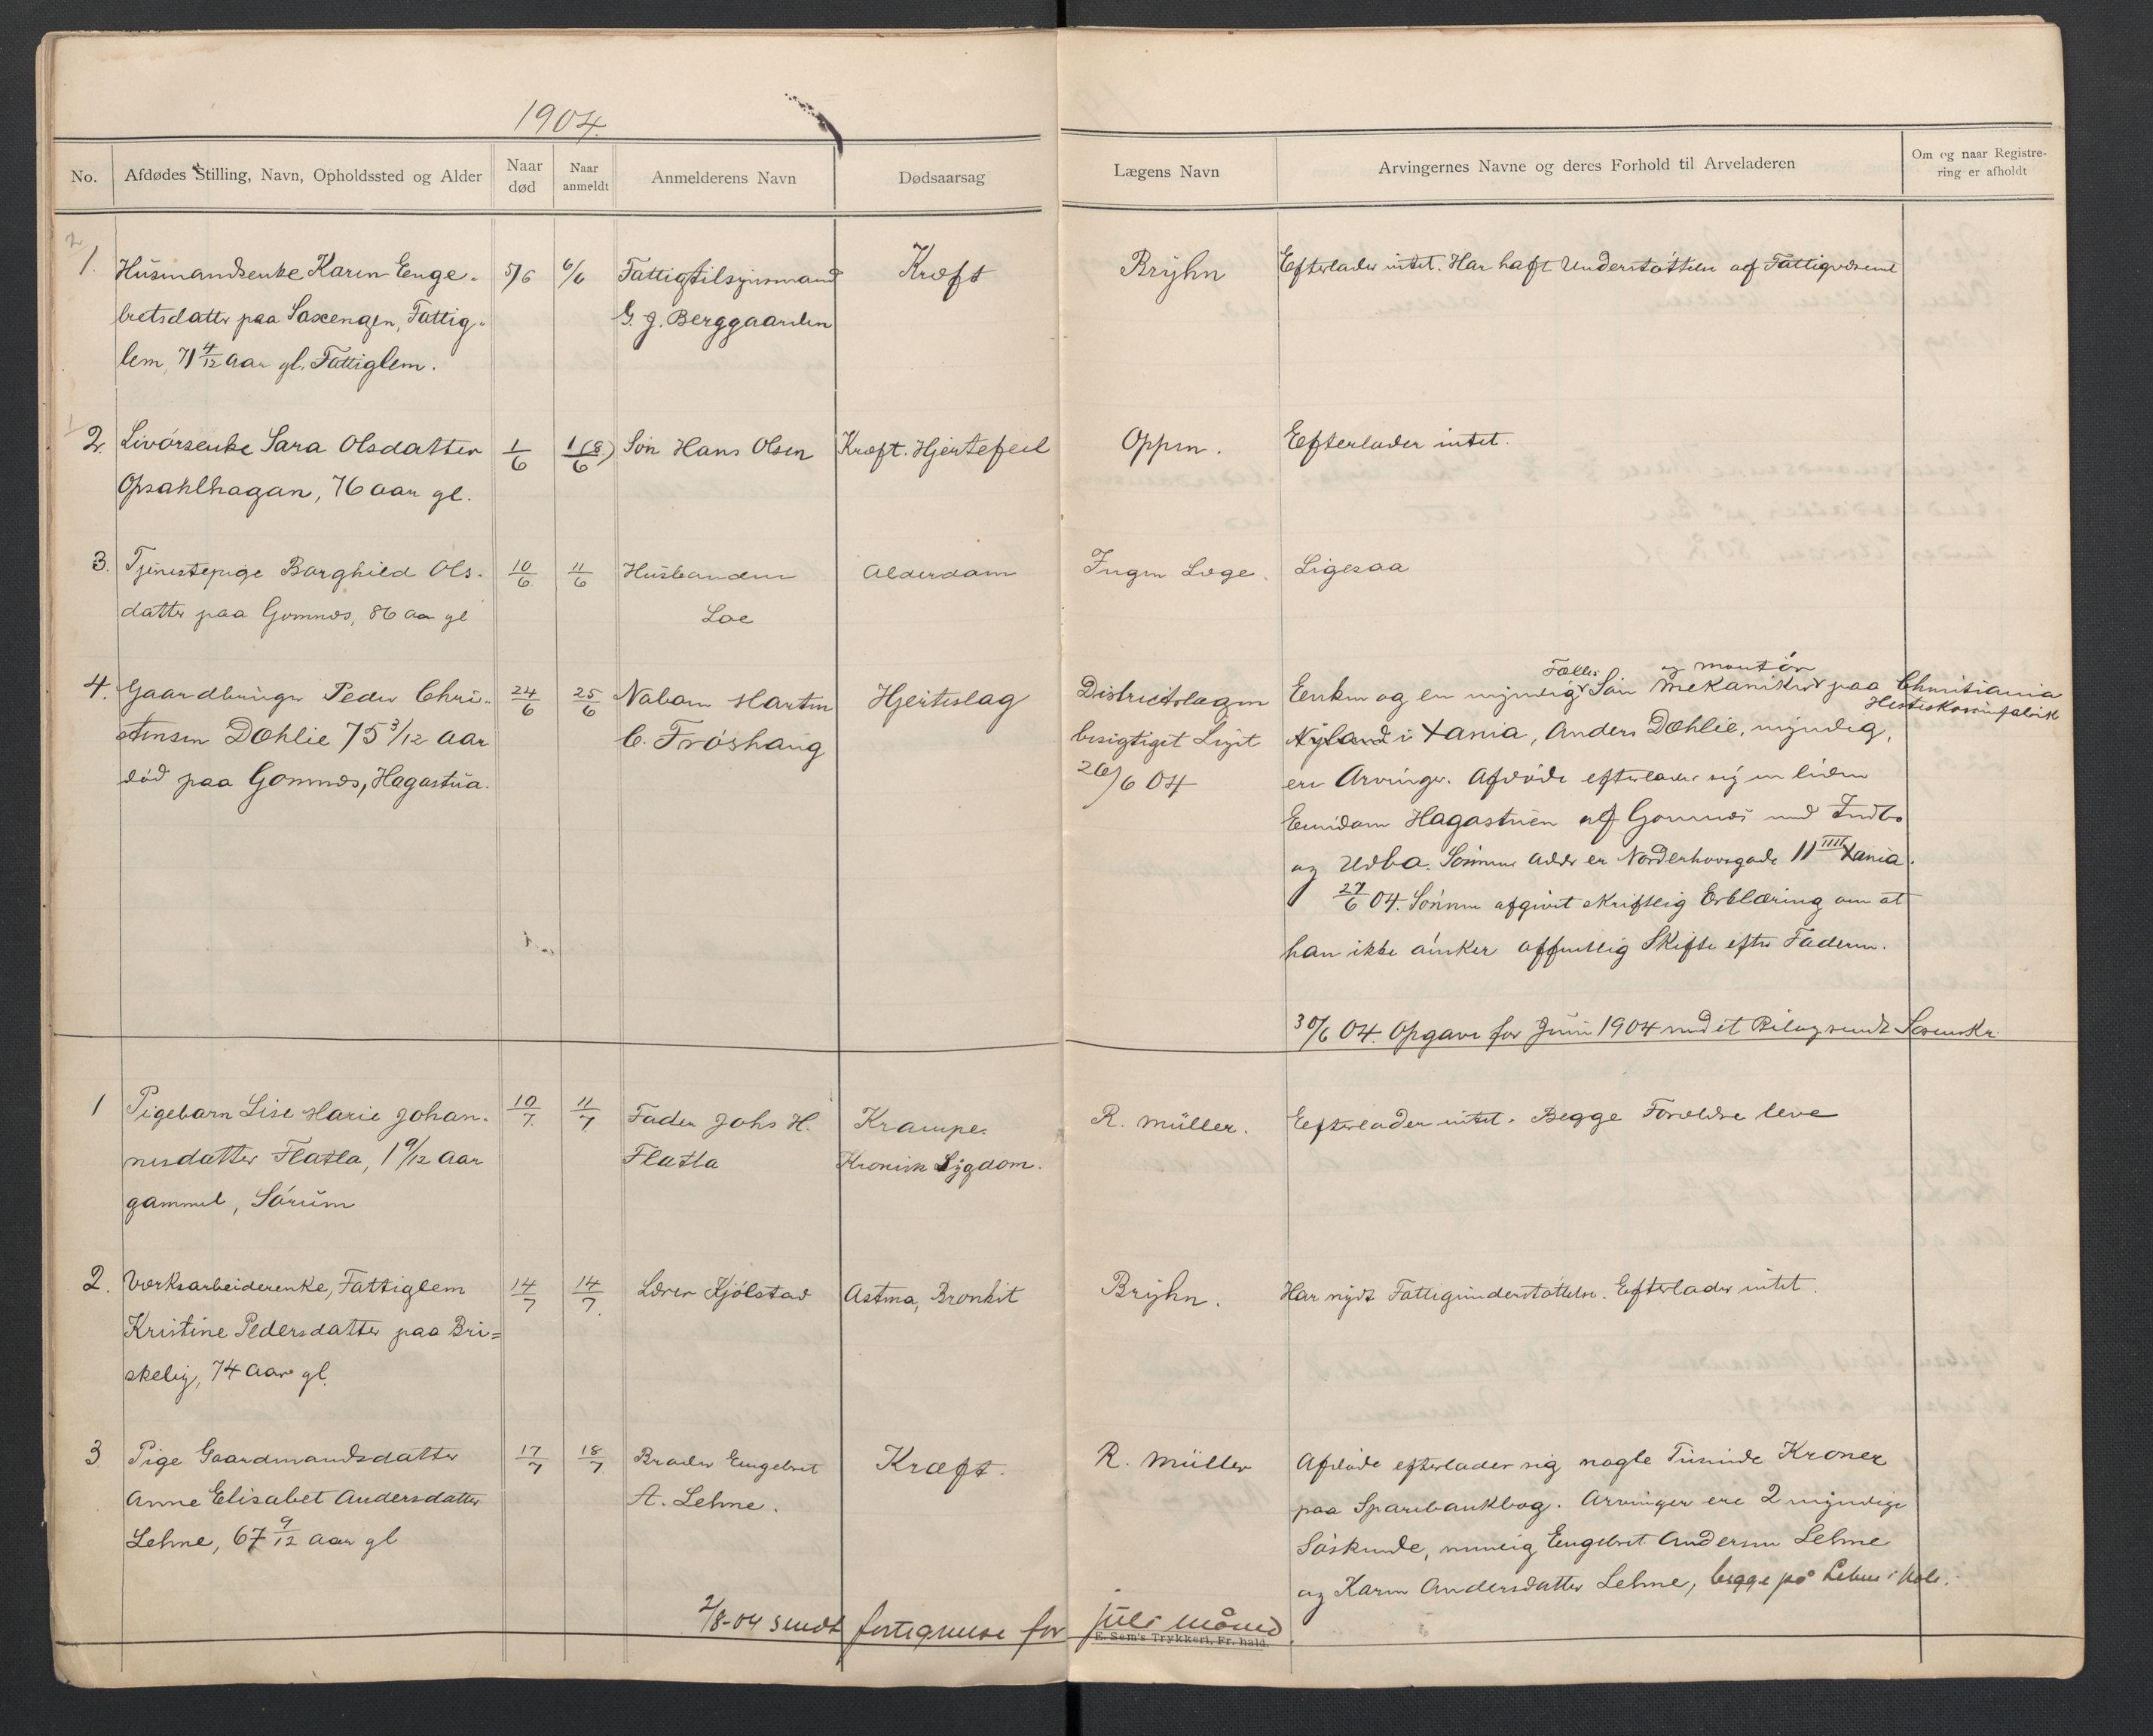 1904.
No.
Afdødes Stilling, Navn, Opholdssted og Alder
Naar død
Naar anmeldt
Anmelderens Navn
Dødsaarsag
Lægens Navn
Arvingernes Navne og deres Forhold til Arveladeren
Om og naar Registrering er afholdt
1.
Husmandsenke Karen Enge-
bretsdatter paa Saxengen, Fattig-
lem, 71 4/12 aar gl. Fattiglem.
5/6
6/6
Fattigtilsynsmand
G. J. Berggaarden
Kræft
Bryhn
Efterlader intet. Har haft Understøttelse af Fattigvæsenet
2.
Livørsenke Sara Olsdatter
Opsahlhagan, 76 aar gl.
1/6
1(8)/6
Søn Hans Olsen
Kræft. Hjertefeil
Oppen.
Efterlader intet.
3.
Tjenestepige Borghild Ols-
datter paa Gomnæs, 86 aar gl
10/6
11/6
Husbonden
Loe
Alderdom
Ingen Læge.
Ligesaa
4.
Gaardbruger Peder Chri-
stensen Dæhlie 75 3/12 aar
død paa Gomnæs, Hagastua.
24/6
25/6
Naboen Martin
C. Frøshaug
Hjerteslag
Districtslægen
besigtiget Liget
26/6 04
Fælles og montør
Enken og en myndig Søn Mekaniker paa Christiania
Hesteskosømfabrik
Nyland i Xania, Anders Dæhlie, myndig,
ere Arvinger. Afdøde efterlader sig en liden
Eiendom Hagastuen af Gomnæs med Indbo
og Udbo. Sønnens Addr er Norderhovsgade 11 IIII Xania.
27/6 04. Sønnen afgivet skriftlig Erklæring om at
han ikke ønsker offentlig Skifte efter Faderen.
30/6 04. Opgave for Juni 1904 med et Bilag sendt Sorenskr.
1
Pigebarn Lise Marie Johan-
nesdatter Flatla, 1 9/12 aar
gammel, Sørum
10/7
11/7
Fader Johs H.
Flatla
Krampe.
Kronisk Sygdom.
R. Müller.
Efterlader intet. Begge Forældre leve
2.
Værksarbeiderenke, Fattiglem
Kristine Pedersdatter paa Bri=
skelig, 74 aar gl.
14/7
14/7
Lærer Kjølstad
Astma, Bronkit
Bryhn.
Har nydt Fattigunderstøttelse. Efterlader intet.
3
Pige Gaardmandsdatter
Anne Elisabet Andersdatter
Lehne, 67 9/12 aar gl
17/7
18/7
Broder Engebret
A. Lehne.
Kræft.
R. Müller
Afdøde efterlader sig nogle Tusinde Kroner
paa Sparebankbog. Arvinger ere 2 myndige
Søskende, nemlig Engebret Andersen Lehne
og Karen Andersdatter Lehne, begge på Lehne i Hole.
2/8-04 sendt fortegnelse for juli måned
E. Sem's Trykkeri, Fr. hald.